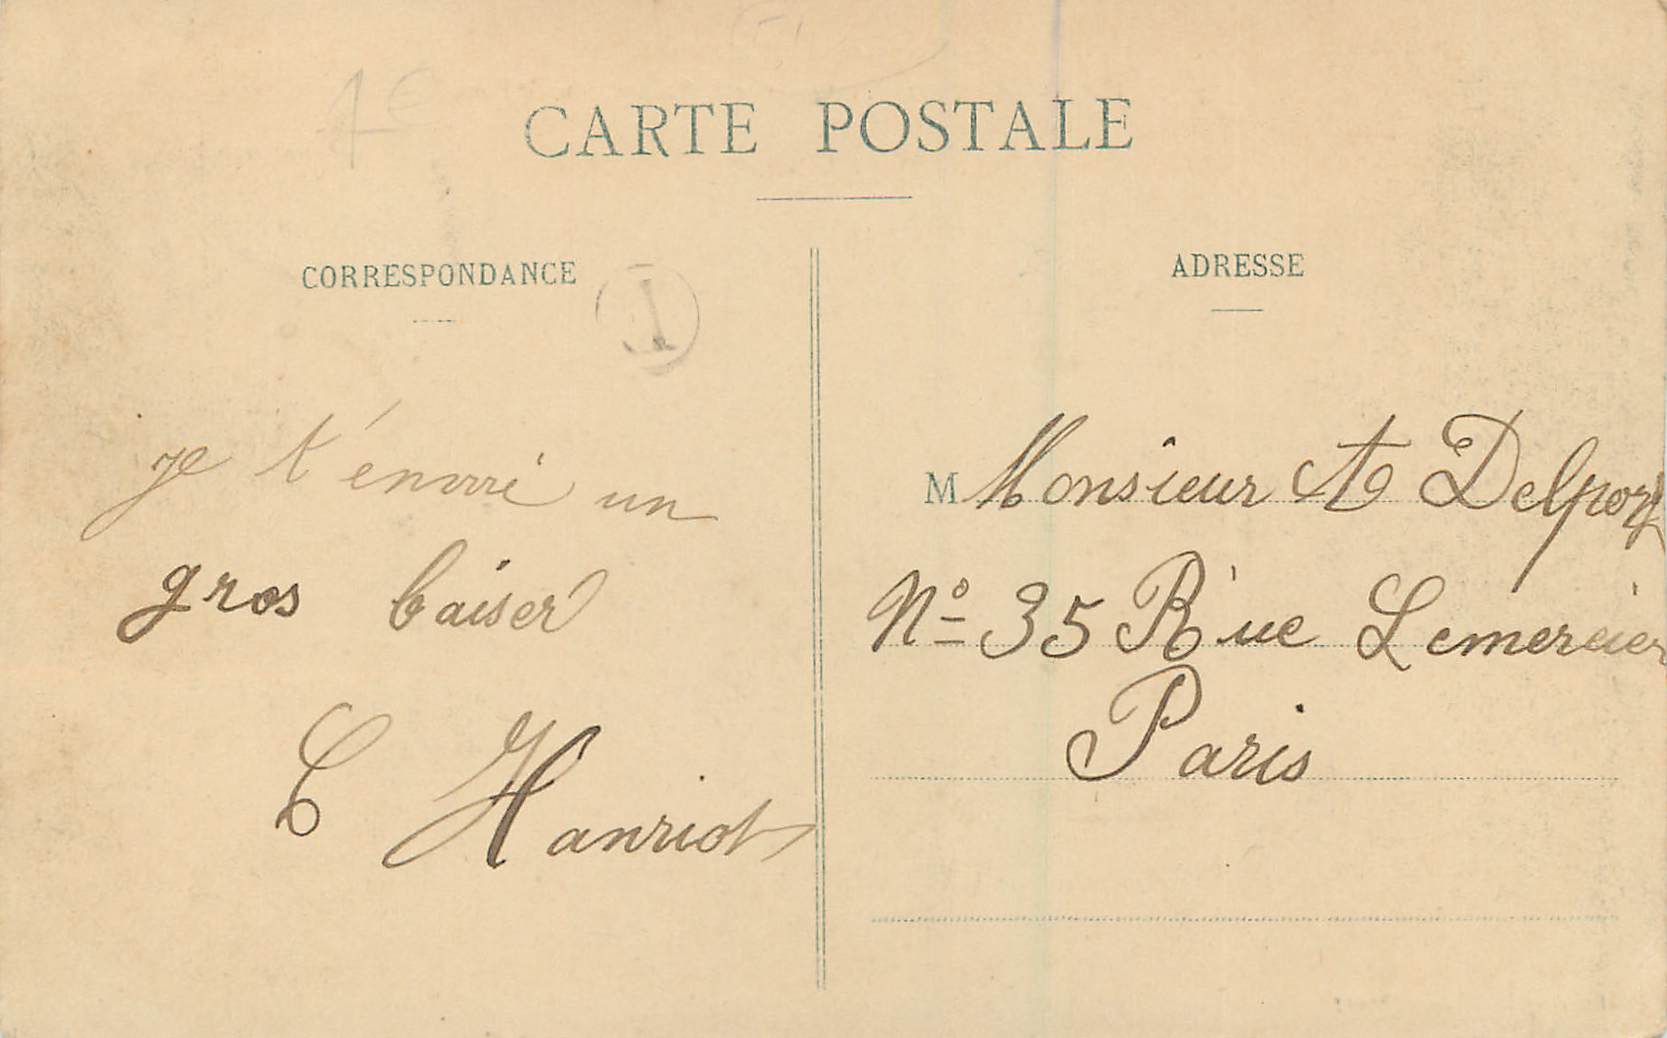 CARTE POSTALE
CORRESPONDANCE
je t'envoi un
gros baiser
C Hanriot
ADRESSE
M Monsieur A Delport
N° 35 Rue Lemercier
Paris